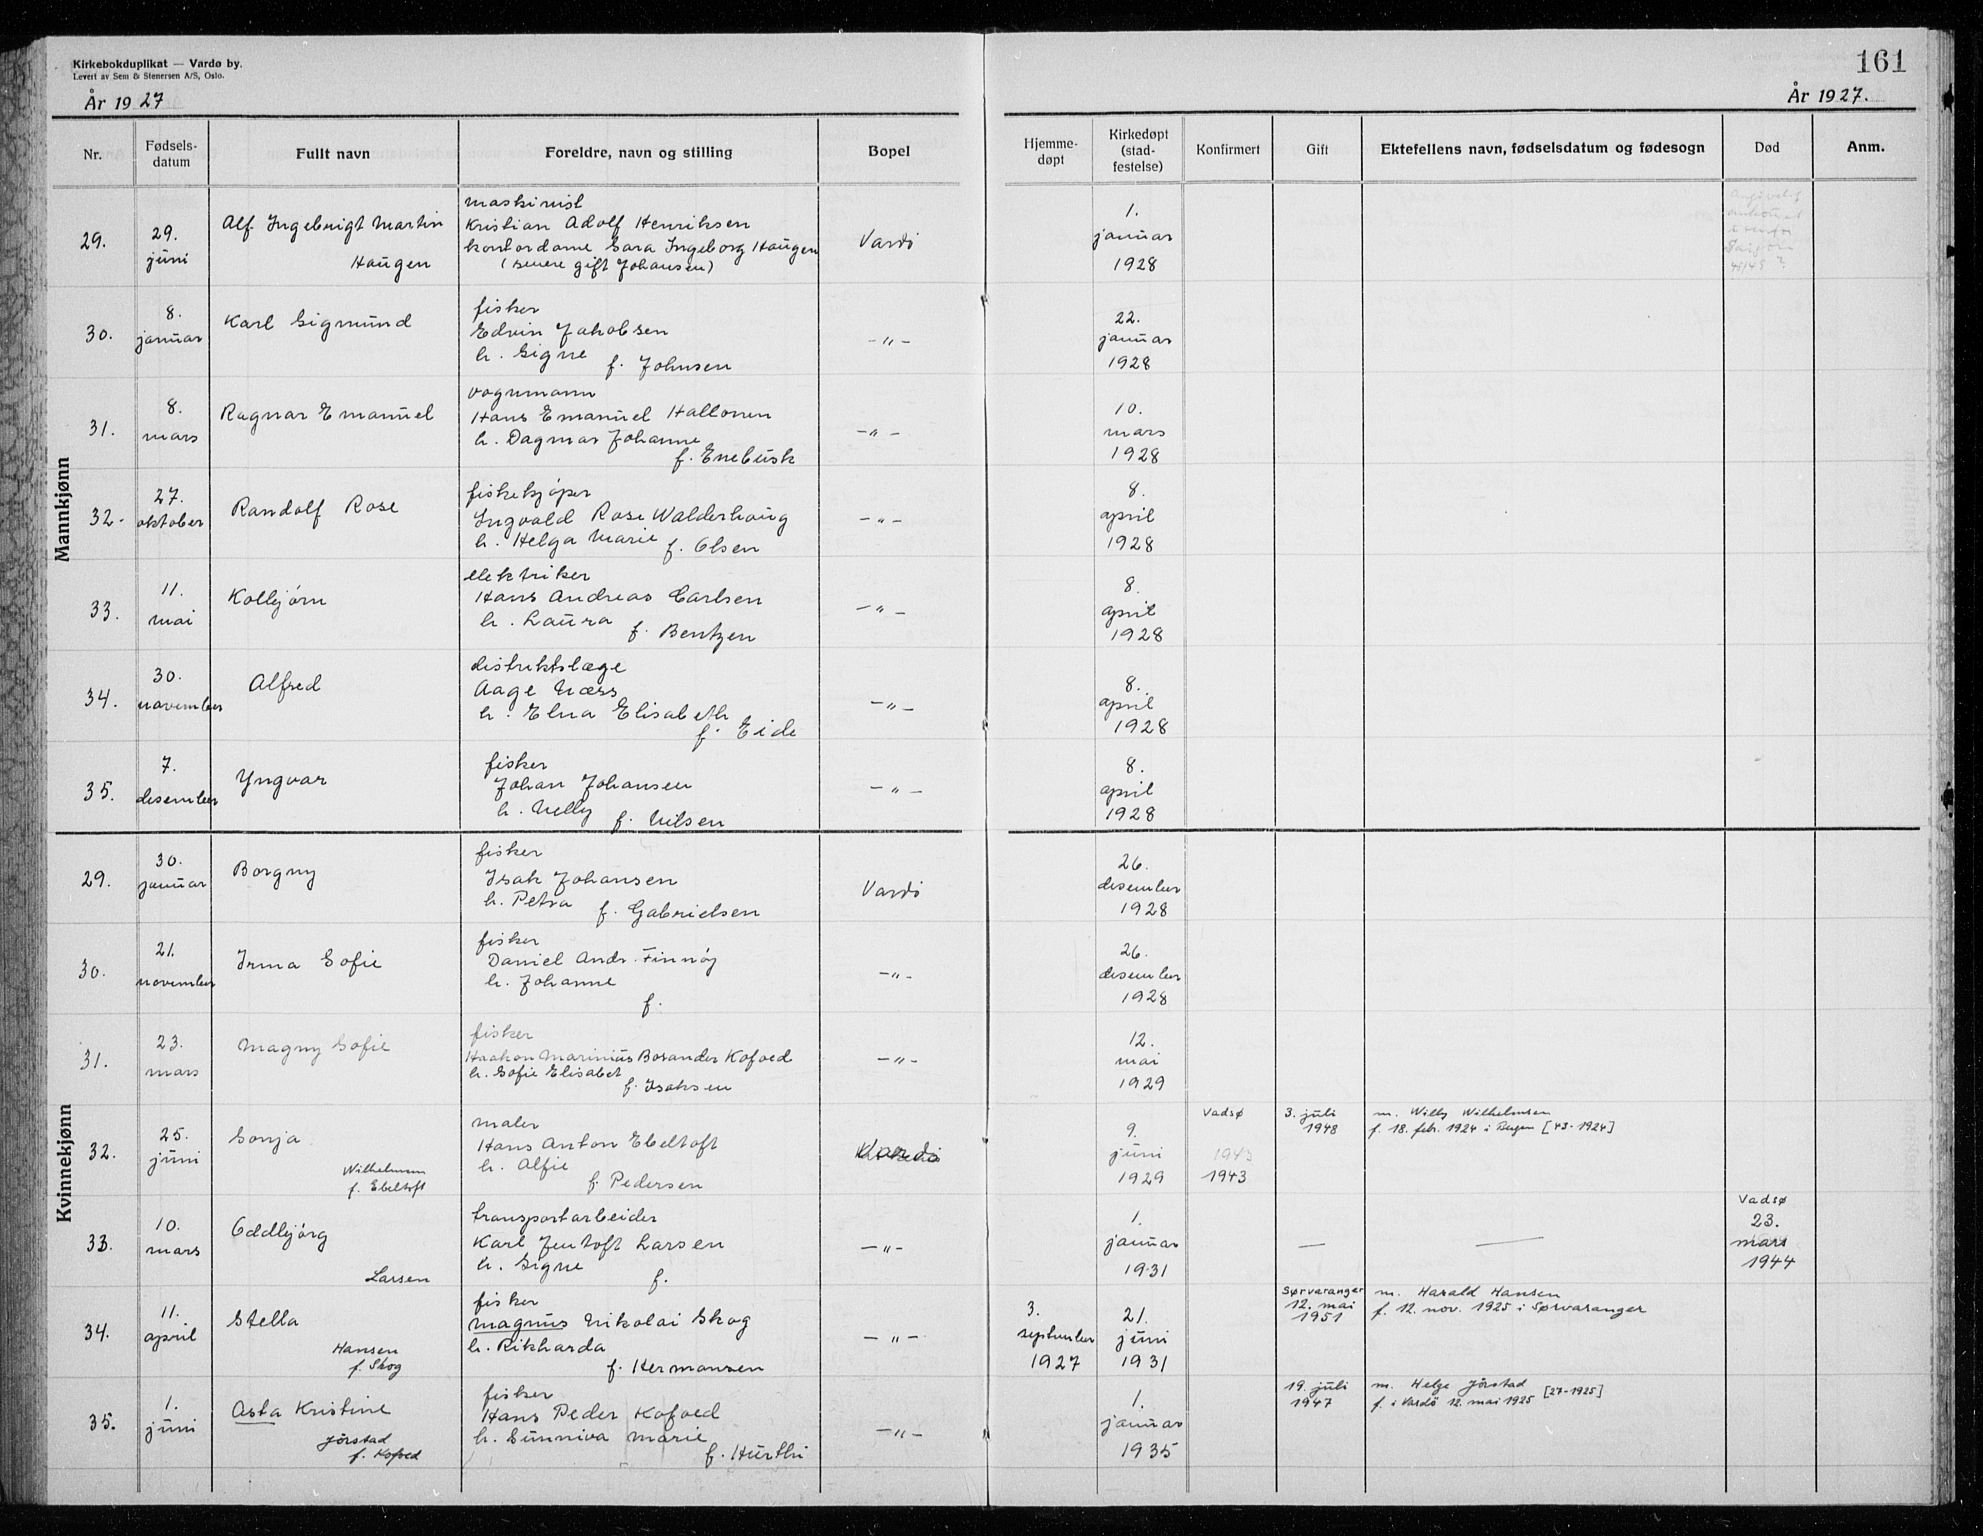 Kirkebokduplikat — Vardø by.
Levert av Sem & Stenersen A/S, Oslo.
161
År 1927
År 1927.
Nr.
Fødsels-
datum
Fullt navn
Foreldre, navn og stilling
Bopel
Hjemme-
døpt
Kirkedøpt
(stad-
festelse)
Konfirmert
Gift
Ektefellens navn, fødselsdatum og fødesogn
Død
Anm.
Mannkjønn
29.
29.
juni
Alf Ingebrigt Martin
Haugen
maskinist
Kristian Adolf Henriksen
kontordame Sara Ingeborg Haugen
(senere gift Johansen)
Vardö
1.
januar
1928
30.
8.
januar
Karl Sigmund
fisker
Edvin Jakobsen
h. Signe f. Johnsen
—"—
22.
januar
1928
31.
8.
mars
Ragnar Emanuel
vognmann
Hans Emanuel Hallonen
h. Dagmar Johanne
f. Enebusk
—"—
10.
mars
1928
32.
27.
oktober
Randolf Rose
fiskekjöper
Ingvald Rose Walderhaug
h. Helga Marie f. Olsen
—"—
8.
april
1928
33.
11.
mai
Kolbjörn
elektriker
Hans Andreas Carlsen
h. Laura f. Bentzen
—"—
8.
april
1928
34.
30.
november
Alfred
distriktslæge
Aage Næss
h. Elna Elisabeth
f. Eide
—"—
8.
april
1928
35.
7.
desember
Yngvar
fisker
Johan Johansen
h. Nelly f. Nilsen
—"—
8.
april
1928
Kvinnekjønn
29.
30.
januar
Borgny
fisker
Isak Johansen
h. Petra f. Gabrielsen
Vardö
26.
desember
1928
30.
21.
november
Irma Sofie
fisker
Daniel Andr. Finnöy
h. Johanne
f.
—"—
26.
desember
1928
31.
23.
mars
Magny Sofie
fisker
Haakon Marinius Bosander Kofoed
h. Sofie Elisabet
f. Isaksen
—"—
12.
mai
1929
32.
25.
juni
Sonja
Wilhelmsen
f. Ebeltoft
maler
Hans Anton Ebeltoft
h. Alfie
f. Pedersen
Vardö
9.
juni
1929
Vadsø
1943
1943
3. juli
1948
m. Willy Wilhelmsen
f. 18. febr. 1924 i Bergen [43-1924]
33.
10.
mars
Oddbjörg
Larsen
transportarbeider
Karl Jentoft Larsen
h. Signe
f.
—"—
1.
januar
1931
—
—
Vadsø
23.
mars
1944
34.
11.
april
Stella
Hansen
f. Skog
fisker
Magnus Nikolai Skog
h. Rikharda
f. Hermansen
—"—
3.
september
1927
21.
juni
1931
Sørvaranger
12. mai
1951
m. Harald Hansen
f. 12. nov. 1925 i Sørvaranger
35.
1.
juni
Asta Kristine
Jörstad
f. Kofoed
fisker
Hans Peder Kofoed
h. Sunniva Marie
f. Hurthi
—"—
1.
januar
1935
19. juli
1947
m. Helge Jörstad
f. i Vardö 12. mai 1925 [27-1925]